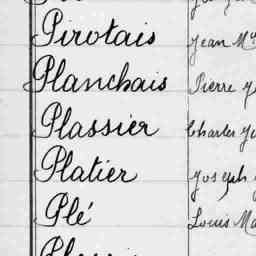 Pirotais Jean M
Planchais Pierre
Plassier Charles Ju
Platier Joseph
Plé Louis Ma